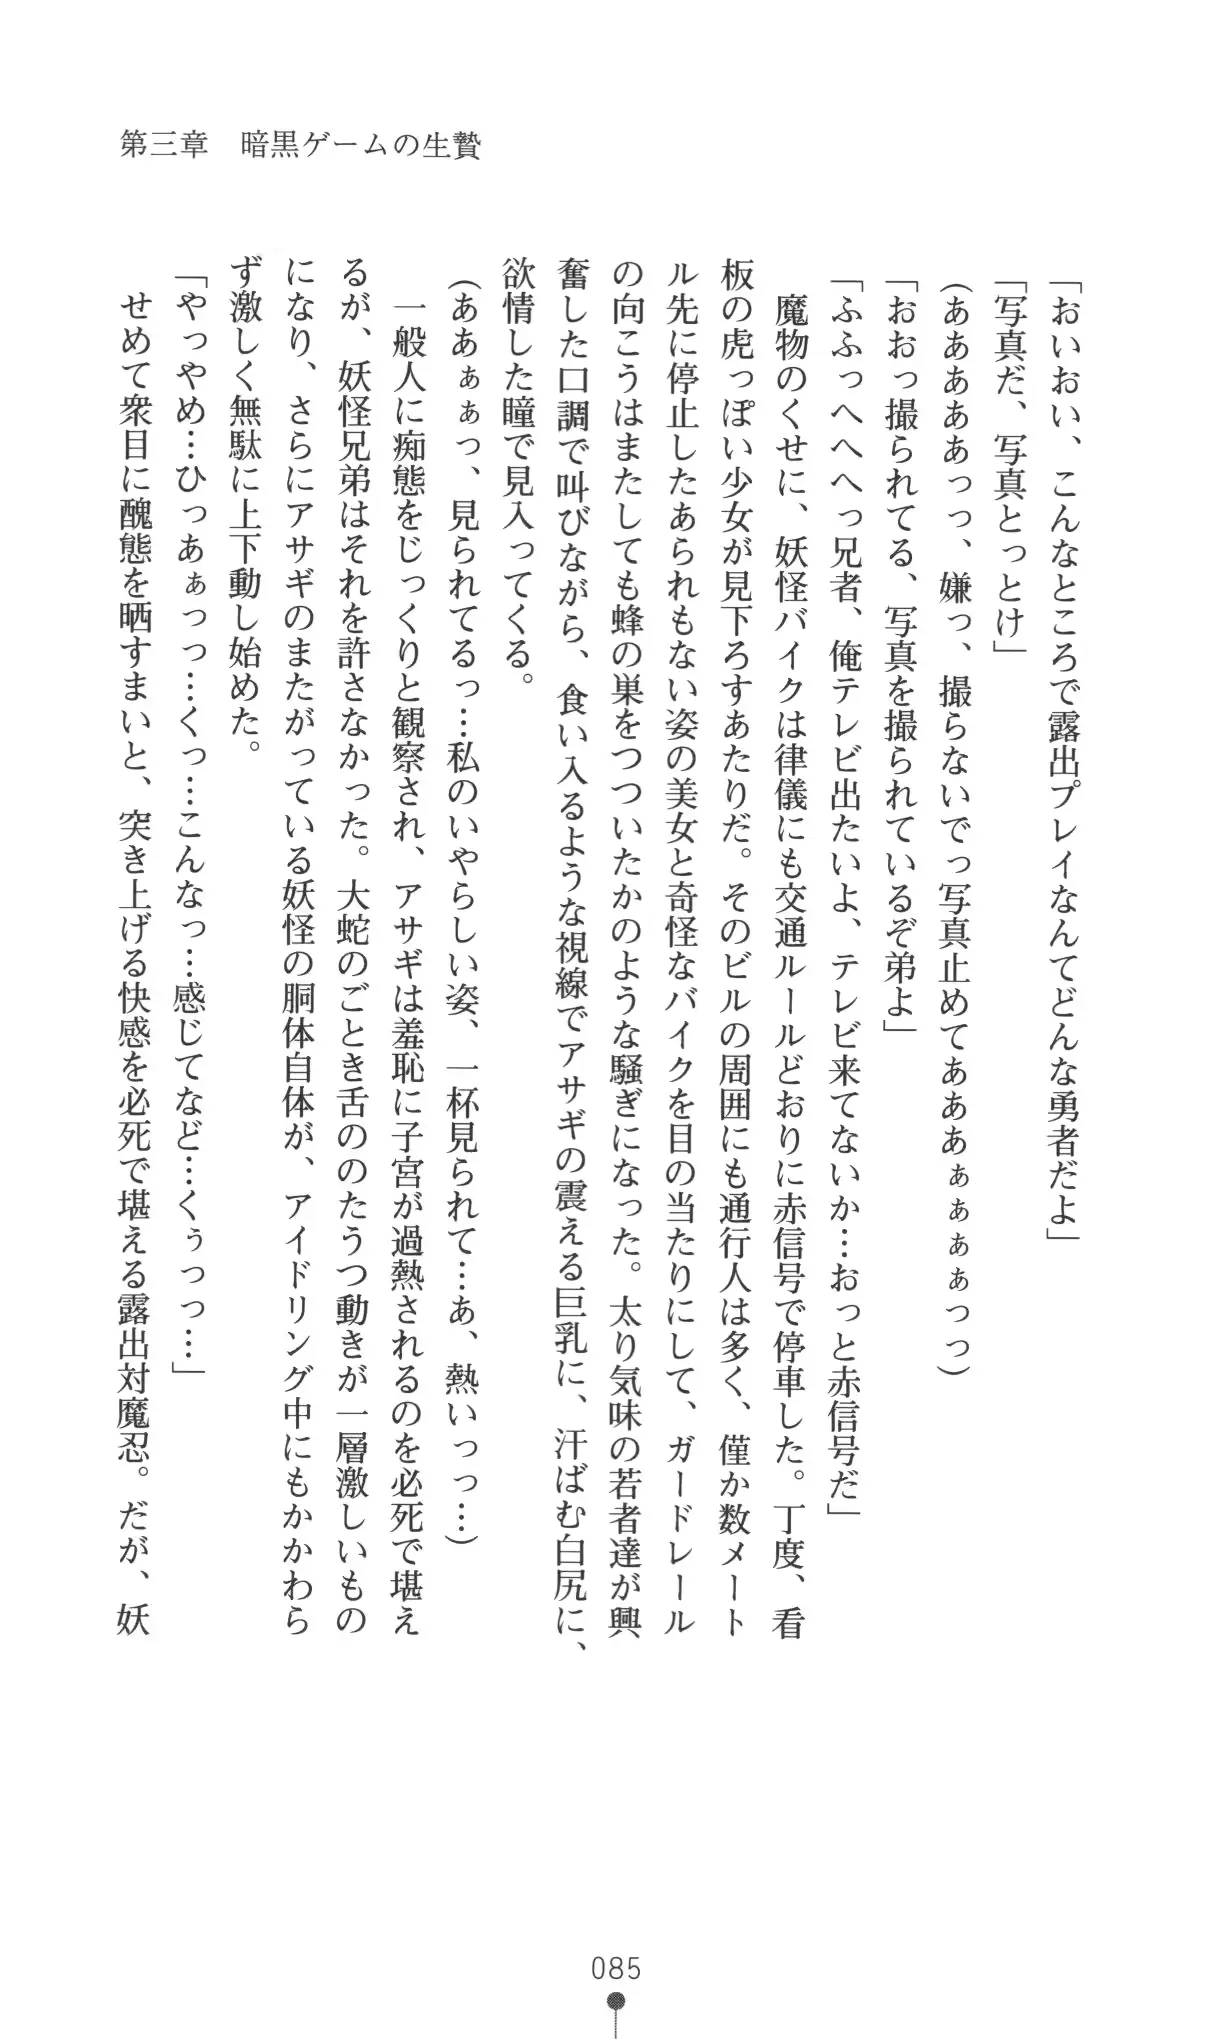 第三章　暗黒ゲームの生贄
「おいおい、こんなところで露出プレイなんてどんな勇者だよ」
「写真だ、写真とっとけ」
（あああああっっ、嫌っ、撮らないでっ写真止めてあああぁぁぁぁっっ）
「おおっ撮られてる、写真を撮られているぞ弟よ」
「ふふっへへへっ兄者、俺テレビ出たいよ、テレビ来てないか…おっと赤信号だ」
　魔物のくせに、妖怪バイクは律儀にも交通ルールどおりに赤信号で停車した。丁度、看
板の虎っぽい少女が見下ろすあたりだ。そのビルの周囲にも通行人は多く、僅か数メート
ル先に停止したあられもない姿の美女と奇怪なバイクを目の当たりにして、ガードレール
の向こうはまたしても蜂の巣をつついたかのような騒ぎになった。太り気味の若者達が興
奮した口調で叫びながら、食い入るような視線でアサギの震える巨乳に、汗ばむ白尻に、
欲情した瞳で見入ってくる。
（ああぁぁっ、見られてるっ…私のいやらしい姿、一杯見られて…あ、熱いっっ…）
　一般人に痴態をじっくりと観察され、アサギは羞恥に子宮が過熱されるのを必死で堪え
るが、妖怪兄弟はそれを許さなかった。大蛇のごとき舌ののたうつ動きが一層激しいもの
になり、さらにアサギのまたがっている妖怪の胴体自体が、アイドリング中にもかかわら
ず激しく無駄に上下動し始めた。
「やっやめ…ひっあぁっっ…くっ…こんなっ…感じてなど…くぅっっ…」
　せめて衆目に醜態を晒すまいと、突き上げる快感を必死で堪える露出対魔忍。だが、妖
085